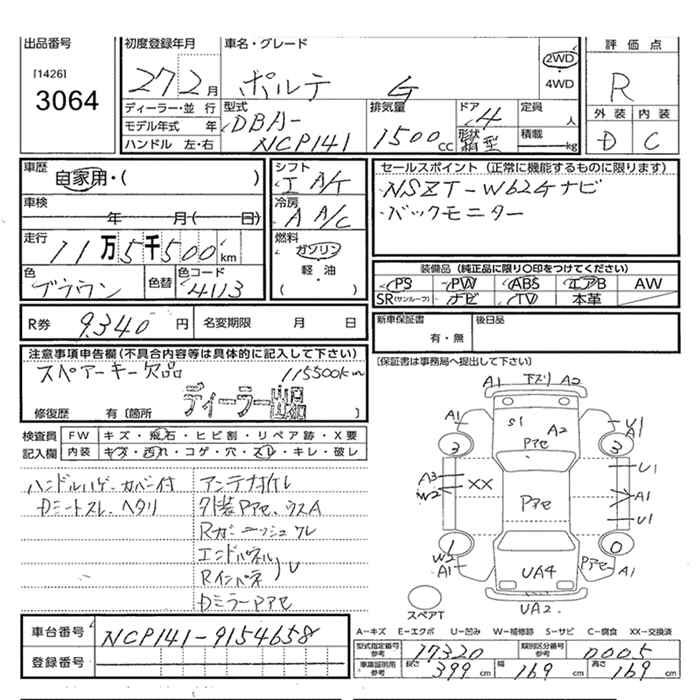 出品番号
[1426]
3064
初度登録年月
27 2 月
車名・グレード
ポルテ G
2WD
・
4WD
評価点
R
外装 内装
D C
ディーラー・並行
モデル年式 年
ハンドル 左・右
型式
DBA-
NCP141
排気量
1500 cc
ドア
4
形状
箱型
定員
人
積載
kg
車歴
自家用・( )
車検
年 月( 日)
走行
11万5千500km
色
ブラウン
色替
色コード
4113
シフト
I A/T
冷房
A A/C
燃料
ガソリン
軽・油
( )
セールスポイント (正常に機能するものに限ります)
・NSZT-W62Gナビ
・バックモニター
装備品 (純正品に限り○印をつけてください)
PS PW ABS エアB AW
SR(サンルーフ) ナビ TV 本革
R券 9,340 円 名変期限 月 日
新車保証書
有・無
後日品
[保証書は事務局へ提出して下さい]
注意事項申告欄(不具合内容等は具体的に記入して下さい)
スペアーキー欠品 115500km
ディーラー出品
修復歴 有〔箇所 〕
検査員
記入欄
FW キズ・飛石・ヒビ割・リペア跡・X要
内装 キズ・汚れ・コゲ・穴・スレ・キレ・破レ
ハンドルハゲ、カバー付
Dシートスレ、ヘタリ
アンテナ折レ
外装Pアセ、ウスA
エンドパネル
Rインパネ
DミラーPアセ
A1 下スリ A2
A1 S1 A2 Pアセ U1 A1
3 3
A3 W2 XX Pアセ U1 A1 U1
1 0
W3 A1 UA4 Pアセ A1
スペアT
UA2
A－キズ E－エクボ U－凹み W－補修跡 S－サビ C－腐食 XX－交換済
車台番号 NCP141-9154658
登録番号
型式指定番号 参考 17320 類別区分番号 参考 0005
車庫証明用 参考 長さ 399 cm 幅 169 cm 高さ 169 cm